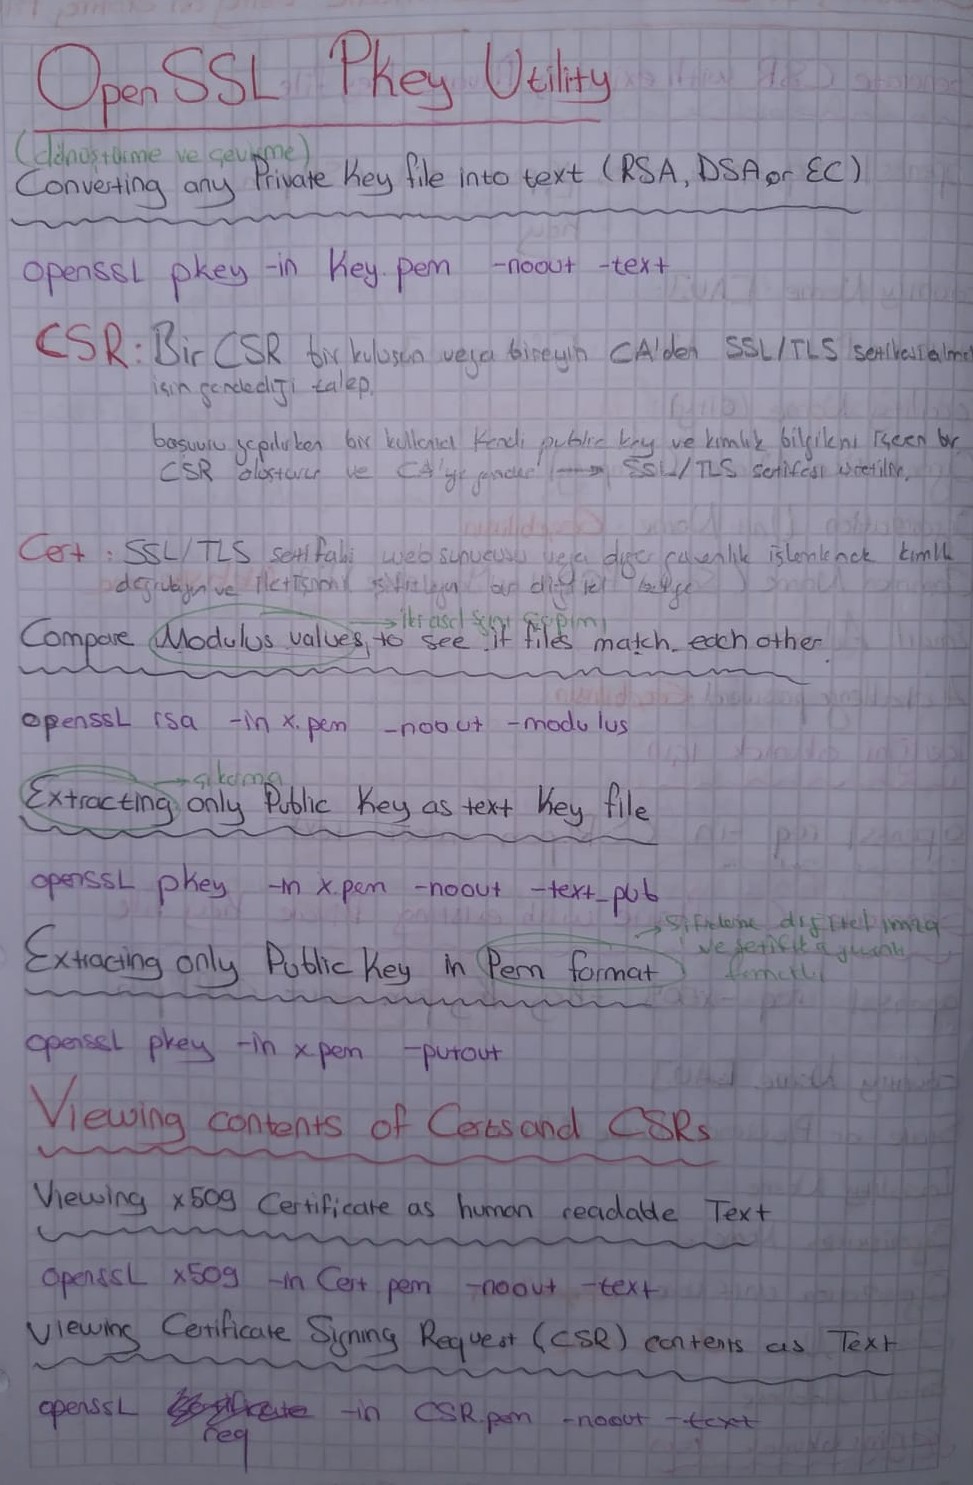 OpenSSL Pkey Utility
(dönüştürme ve çevirme)
Converting any Private Key file into text (RSA, DSA or EC)
openssL pkey -in Key.pem -noout -text
CSR: Bir CSR bir kuluşun veya bireyin CA'den SSL/TLS sertifikası alma
için gönderdiği talep.
başvuru yapılırken bir kullanıcı kendi public key ve kimlik bilgileni içeren bir
CSR oluşturur ve CA'ye gönderir → SSL/TLS sertifası üretilir.
Cert: SSL/TLS sertifabi web sunucusu veya diğer güvenlik işlemlerinde kimlik
doğrulayan ve iletişimi şifreleyen bir digital belge
→ iki asal sayı çarpımı
Compare Modulus values, to see if files match each other.
openssL rsa -in x.pem -noout -modulus
→ çıkarma
Extracting only Public Key as text Key file
openssL pkey -in x.pem -noout -text_pub
→ şifreleme dijital imza
ve sertifika
formatı
Extracting only Public Key in Pem format
openssL pkey -in x pem -putout
Viewing contents of Certs and CSRs
Viewing x509 Certificate as human readable Text
OpenssL x509 -in Cert pem -noout -text
Viewing Certificate Signing Request (CSR) contents as Text
openssL req -in CSR.pem -noout -text